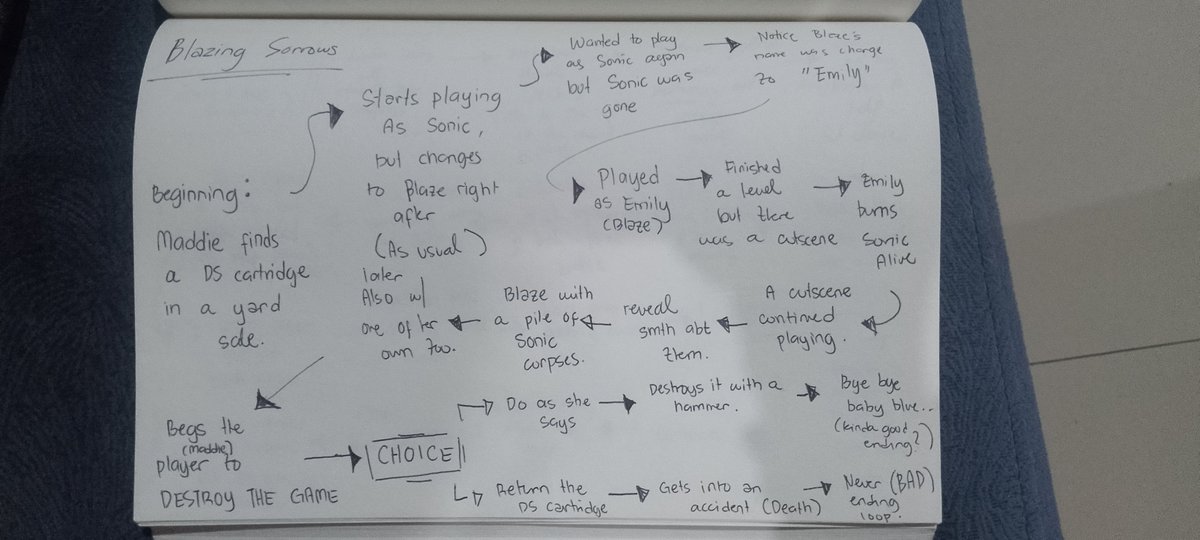 Blazing Sorrows
Beginning:
Maddie finds
a DS cartridge
in a yard
sale.
Starts playing
As Sonic,
but changes
to Blaze right
after
(As usual)
Wanted to play
as Sonic again
but Sonic was
gone
Notice Blaze's
name was change
to "Emily"
Played
as Emily
(Blaze)
Finished
a level
but there
was a cutscene
Emily
burns
Sonic
Alive
A cutscene
continued
playing.
reveal
smth abt
them.
Blaze with
a pile of
Sonic
corpses.
later
Also w/
one of her
own too.
Begs the
(Maddie)
player to
DESTROY THE GAME
CHOICE
Do as she
says
Destroys it with a
hammer.
Bye bye
baby blue..
(kinda good
ending?)
Return the
DS cartridge
Gets into an
accident (Death)
Never (BAD)
ending
loop.